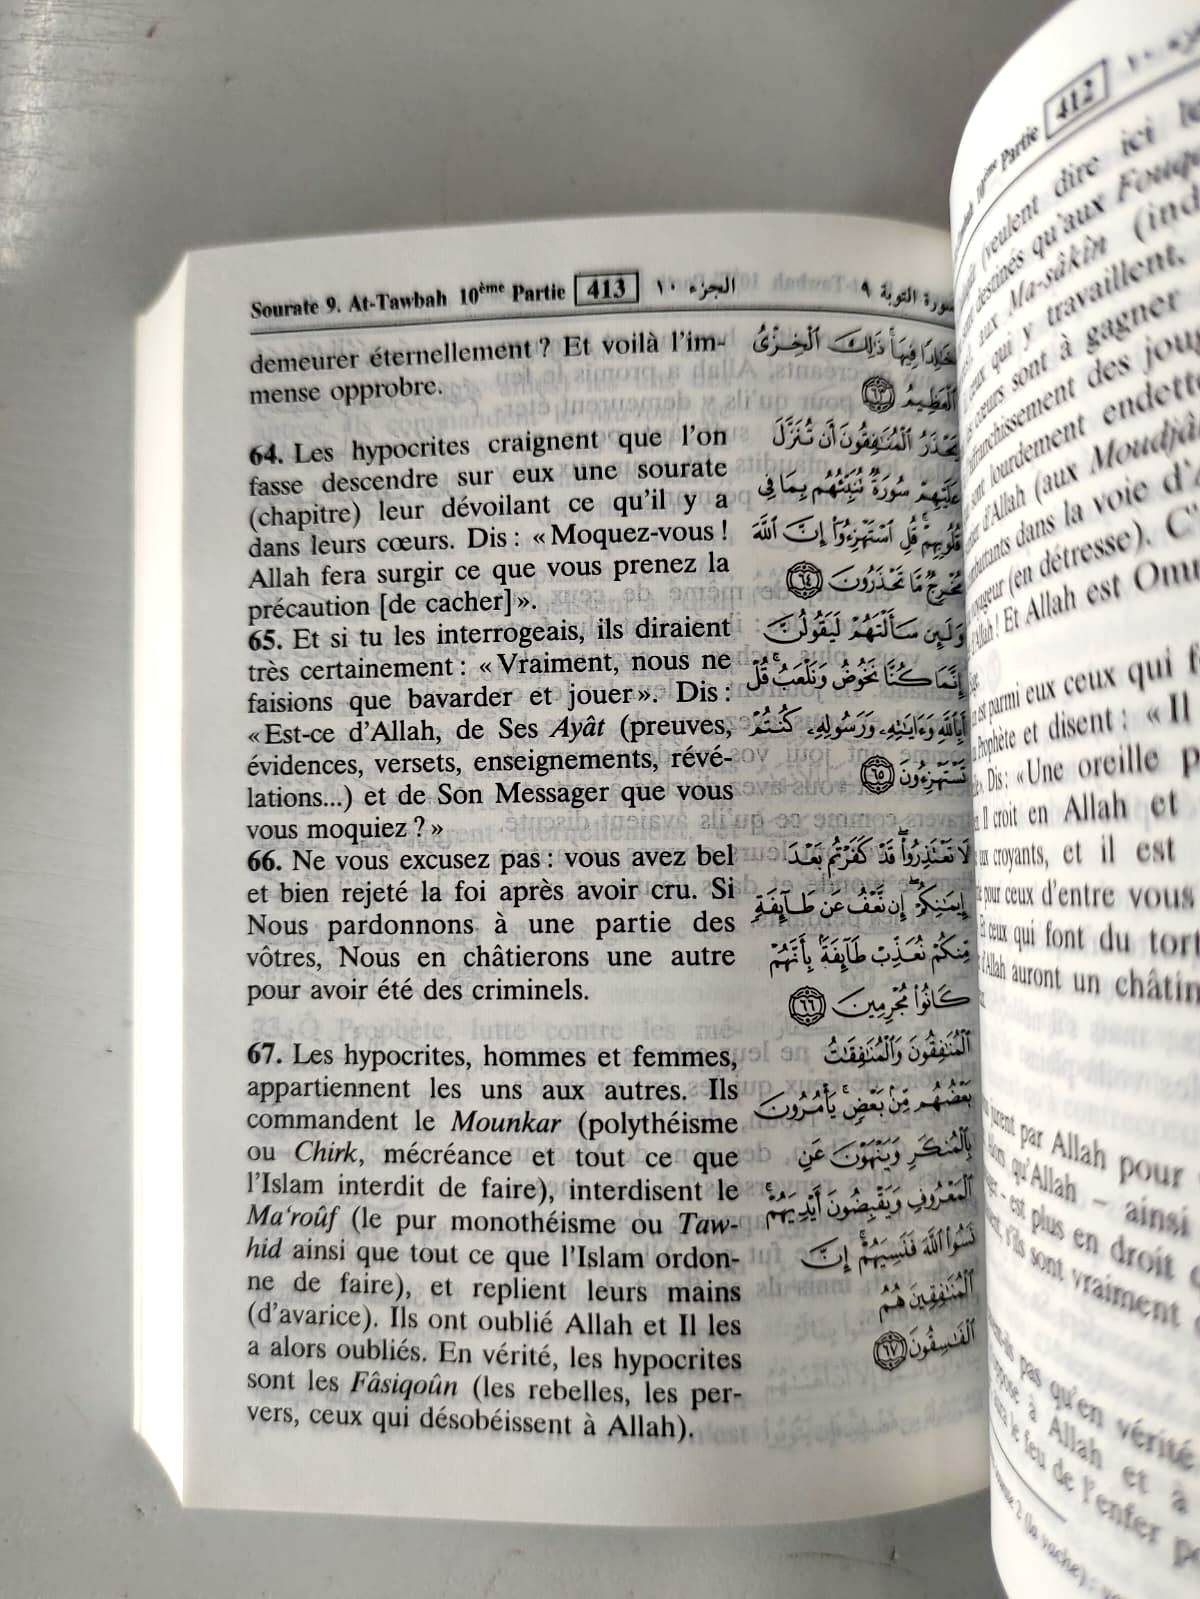 Sourate 9. At-Tawbah 10ème Partie 413 الجزء ١٠ سورة التوبة ٩
demeurer éternellement ? Et voilà l'im-
mense opprobre.
64. Les hypocrites craignent que l'on
fasse descendre sur eux une sourate
(chapitre) leur dévoilant ce qu'il y a
dans leurs cœurs. Dis : « Moquez-vous !
Allah fera surgir ce que vous prenez la
précaution [de cacher] ».
65. Et si tu les interrogeais, ils diraient
très certainement : « Vraiment, nous ne
faisions que bavarder et jouer ». Dis :
« Est-ce d'Allah, de Ses Ayât (preuves,
évidences, versets, enseignements, révé-
lations...) et de Son Messager que vous
vous moquiez ? »
66. Ne vous excusez pas : vous avez bel
et bien rejeté la foi après avoir cru. Si
Nous pardonnons à une partie des
vôtres, Nous en châtierons une autre
pour avoir été des criminels.
67. Les hypocrites, hommes et femmes,
appartiennent les uns aux autres. Ils
commandent le Mounkar (polythéisme
ou Chirk, mécréance et tout ce que
l'Islam interdit de faire), interdisent le
Ma'roûf (le pur monothéisme ou Taw-
hid ainsi que tout ce que l'Islam ordon-
ne de faire), et replient leurs mains
(d'avarice). Ils ont oublié Allah et Il les
a alors oubliés. En vérité, les hypocrites
sont les Fâsiqoûn (les rebelles, les per-
vers, ceux qui désobéissent à Allah).
خَٰلِدًا فِيهَا ذَٰلِكَ ٱلْخِزْىُ
ٱلْعَظِيمُ ٦٣
يَحْذَرُ ٱلْمُنَٰفِقُونَ أَن تُنَزَّلَ
عَلَيْهِمْ سُورَةٌ تُنَبِّئُهُم بِمَا فِى
قُلُوبِهِمْ قُلِ ٱسْتَهْزِءُوٓا۟ إِنَّ ٱللَّهَ
مُخْرِجٌ مَّا تَحْذَرُونَ ٦٤
وَلَئِن سَأَلْتَهُمْ لَيَقُولُنَّ
إِنَّمَا كُنَّا نَخُوضُ وَنَلْعَبُ قُلْ
أَبِٱللَّهِ وَءَايَٰتِهِۦ وَرَسُولِهِۦ كُنتُمْ
تَسْتَهْزِءُونَ ٦٥
لَا تَعْتَذِرُوا۟ قَدْ كَفَرْتُم بَعْدَ
إِيمَٰنِكُمْ إِن نَّعْفُ عَن طَآئِفَةٍ
مِّنكُمْ نُعَذِّبْ طَآئِفَةًۢ بِأَنَّهُمْ
كَانُوا۟ مُجْرِمِينَ ٦٦
ٱلْمُنَٰفِقُونَ وَٱلْمُنَٰفِقَٰتُ
بَعْضُهُم مِّنۢ بَعْضٍ يَأْمُرُونَ
بِٱلْمُنكَرِ وَيَنْهَوْنَ عَنِ
ٱلْمَعْرُوفِ وَيَقْبِضُونَ أَيْدِيَهُمْ
نَسُوا۟ ٱللَّهَ فَنَسِيَهُمْ إِنَّ
ٱلْمُنَٰفِقِينَ هُمُ
ٱلْفَٰسِقُونَ ٦٧
10ème Partie 412
(veulent dire ici
destinés qu'aux
aux Ma-sâkîn
ceux qui y travaillent,
cœurs sont à gagner
des
sont lourdement
d'Allah (aux
dans la voie
(en détresse).
! Et Allah est
est parmi eux ceux qui
Prophète et disent : « Il
Dis : « Une oreille
Il croit en Allah et
croyants, et il est
pour ceux d'entre vous
ceux qui font du
d'Allah auront un
par Allah pour
qu'Allah – ainsi
– est plus en droit
s'ils sont vraiment
pas qu'en vérité
à Allah et à
le feu de l'enfer
2 (la vache) :